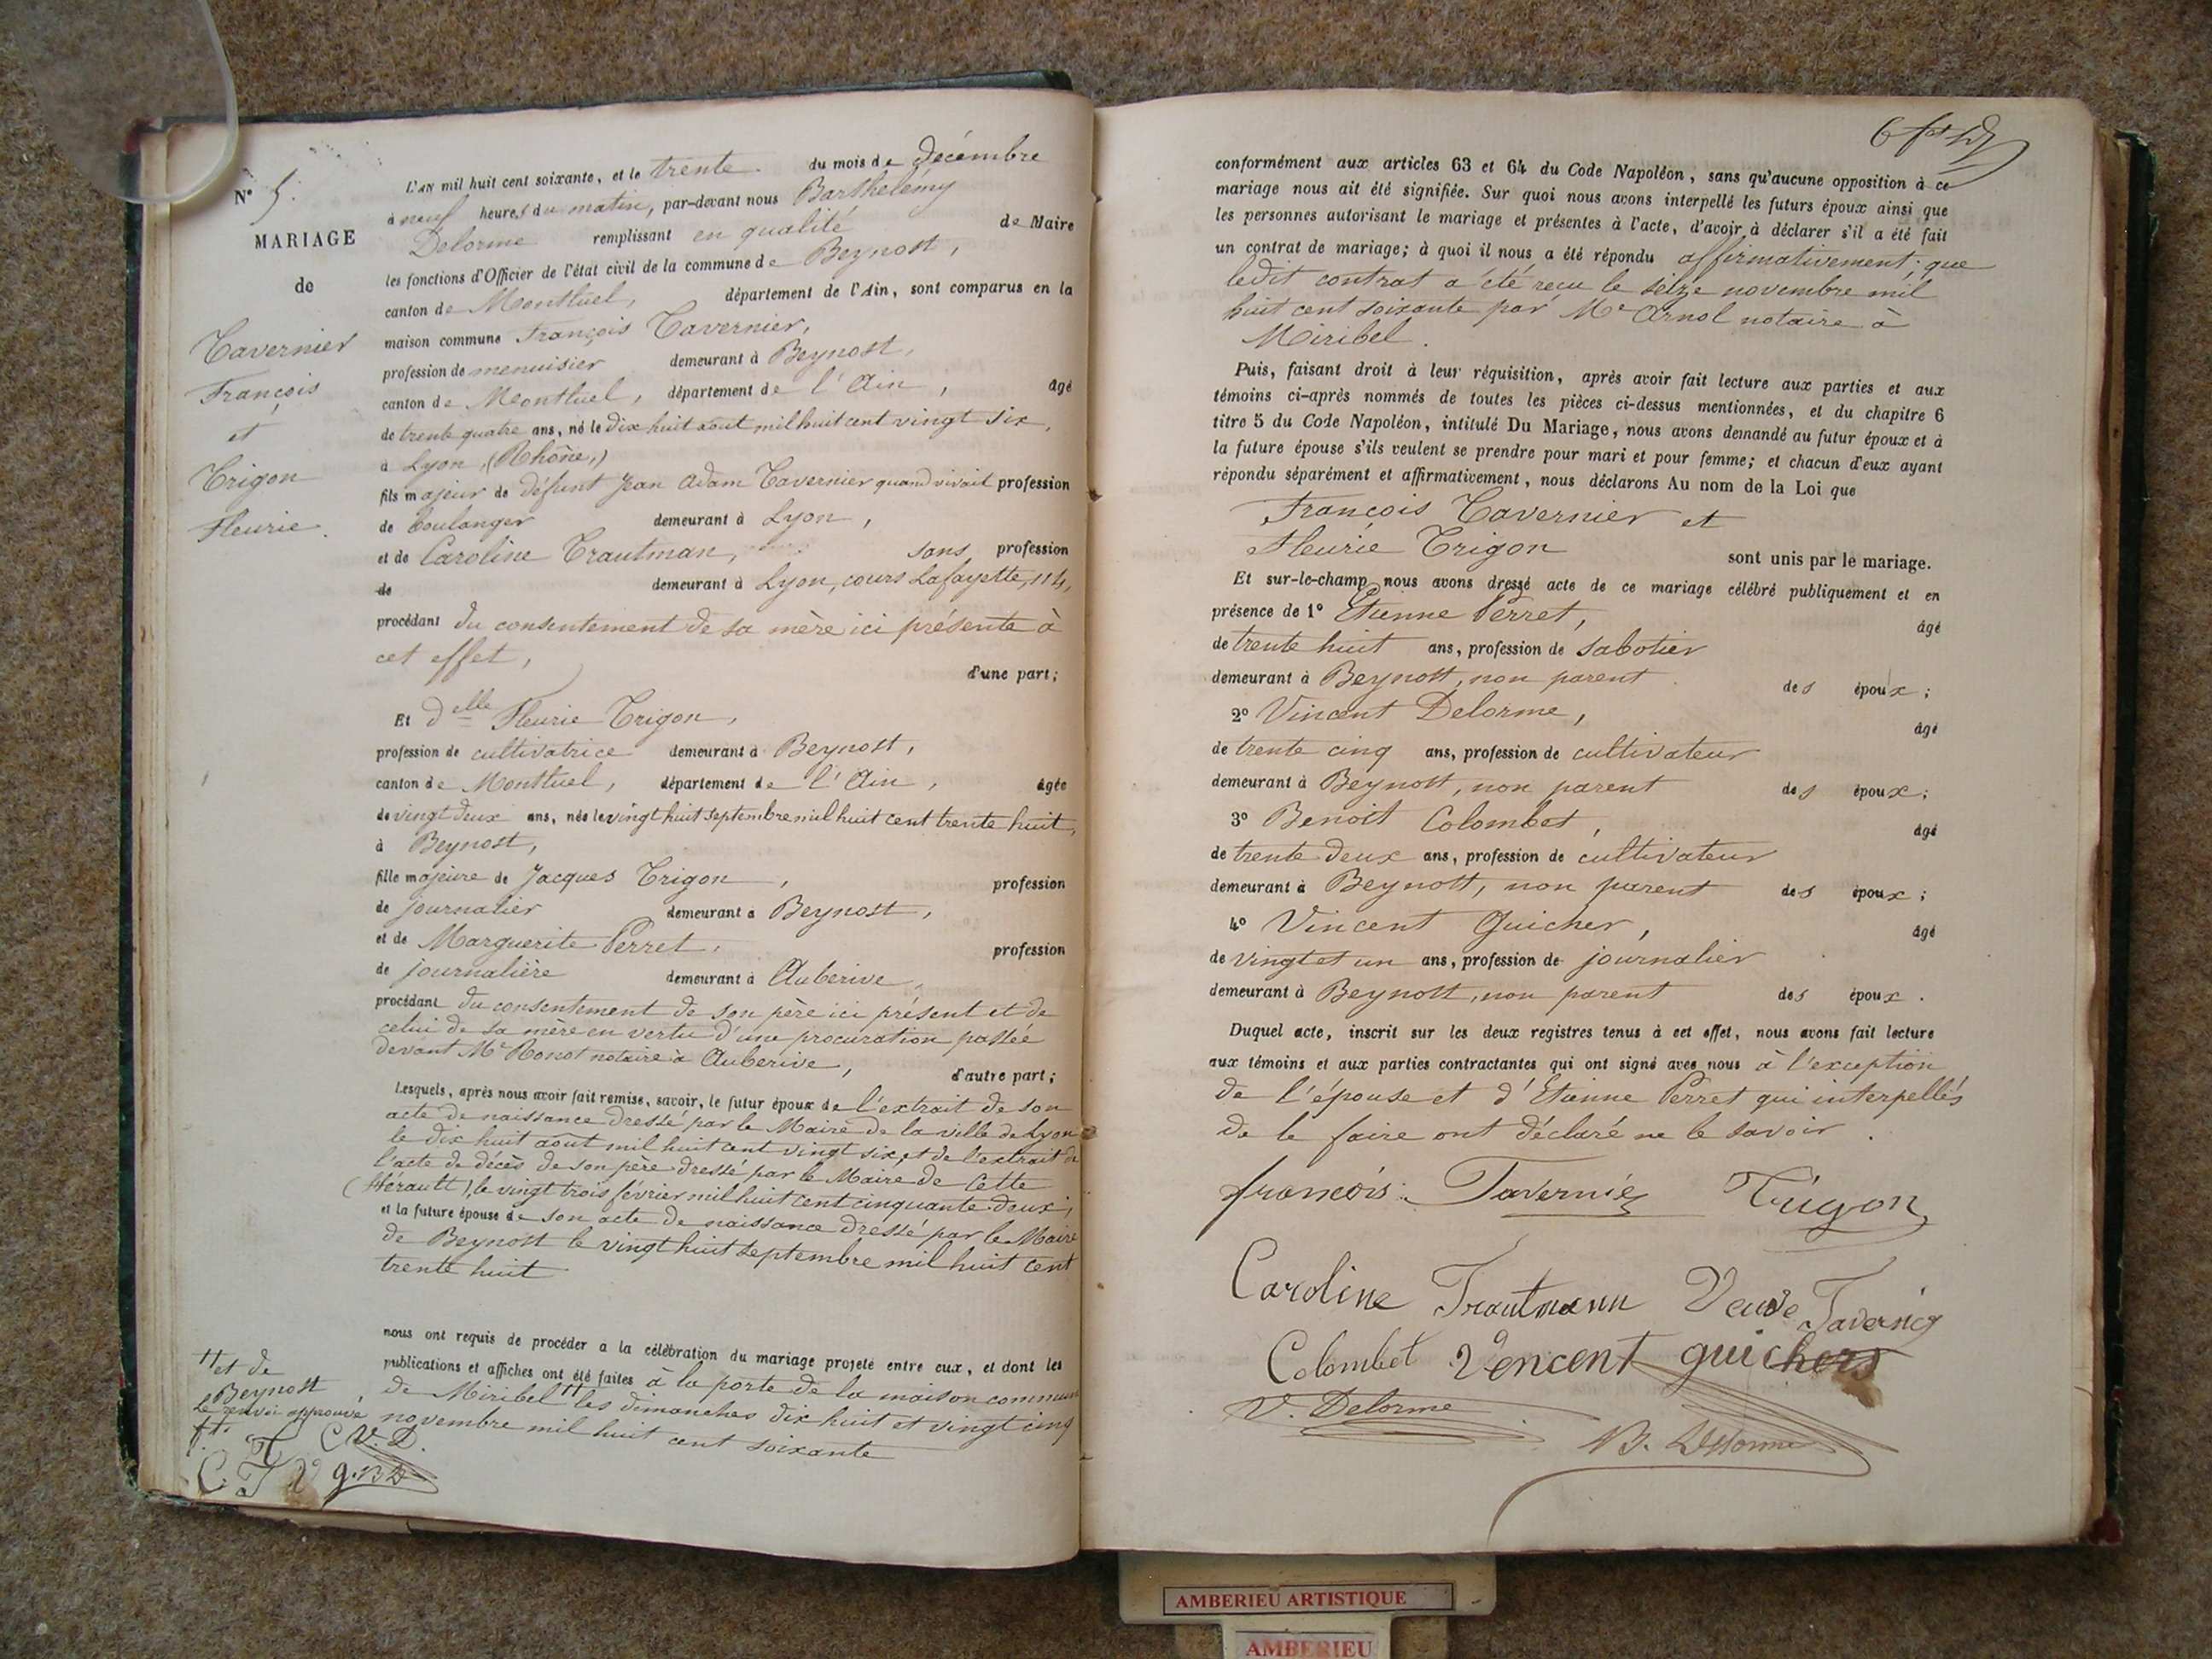 N° 5.
MARIAGE
de
Tavernier
François
et
Trigon
Fleurie.
L'AN mil huit cent soixante, et le trente du mois de décembre
à neuf heures du matin, par-devant nous Barthelémy
Delorme remplissant en qualité de Maire
les fonctions d'Officier de l'état civil de la commune de Beynost,
canton de Montluel, département de l'Ain, sont comparus en la
maison commune François Tavernier,
profession de menuisier demeurant à Beynost,
canton de Montluel, département de l'Ain, âgé
de trente quatre ans, né le dix huit aout mil huit cent vingt six,
à Lyon, (Rhône,)
fils majeur de défunt Jean Adam Tavernier quand vivait profession
de boulanger demeurant à Lyon,
et de Caroline Trautman, sans profession
de demeurant à Lyon, cours Lafayette, 114,
procédant du consentement de sa mère ici présente à
cet effet,
d'une part;
Et delle Fleurie Trigon,
profession de cultivatrice demeurant à Beynost,
canton de Montluel, département de l'Ain, âgée
de vingt deux ans, née le vingt huit septembre mil huit cent trente huit,
à Beynost,
fille majeure de Jacques Trigon, profession
de journalier demeurant à Beynost,
et de Marguerite Perret, profession
de journalière demeurant à Auberive,
procédant du consentement de son père ici présent et de
celui de sa mère en vertu d'une procuration passée
devant Me Ronot notaire à Auberive,
d'autre part;
Lesquels, après nous avoir fait remise, savoir, le futur époux de l'extrait de son
acte de naissance dressé par le Maire de la ville de Lyon
le dix huit aout mil huit cent vingt six, et de l'extrait de
l'acte de décès de son père dressé par le Maire de Cette
(Hérault), le vingt trois février mil huit cent cinquante deux;
et la future épouse de son acte de naissance dressé par le Maire
de Beynost le vingt huit septembre mil huit cent
trente huit
nous ont requis de procéder à la célébration du mariage projeté entre eux, et dont les
publications et affiches ont été faites à la porte de la maison commune
de Miribel ++ les dimanches dix huit et vingt cinq
novembre mil huit cent soixante
++ et de
Beynost,
Le renvoi approuvé
f.t.
T. C V.D.
C. T V g. B D
conformément aux articles 63 et 64 du Code Napoléon, sans qu'aucune opposition à ce
mariage nous ait été signifiée. Sur quoi nous avons interpellé les futurs époux ainsi que
les personnes autorisant le mariage et présentes à l'acte, d'avoir à déclarer s'il a été fait
un contrat de mariage; à quoi il nous a été répondu affirmativement; que
ledit contrat a été reçu le seize novembre mil
huit cent soixante par Me Arnol notaire à
Miribel.
Puis, faisant droit à leur réquisition, après avoir fait lecture aux parties et aux
témoins ci-après nommés de toutes les pièces ci-dessus mentionnées, et du chapitre 6
titre 5 du Code Napoléon, intitulé Du Mariage, nous avons demandé au futur époux et à
la future épouse s'ils veulent se prendre pour mari et pour femme; et chacun d'eux ayant
répondu séparément et affirmativement, nous déclarons Au nom de la Loi que
François Tavernier et
Fleurie Trigon
sont unis par le mariage.
Et sur-le-champ nous avons dressé acte de ce mariage célébré publiquement et en
présence de 1° Etienne Perret, âgé
de trente huit ans, profession de sabotier
demeurant à Beynost, non parent des époux;
2° Vincent Delorme, âgé
de trente cinq ans, profession de cultivateur
demeurant à Beynost, non parent des époux;
3° Benoit Colombet, âgé
de trente deux ans, profession de cultivateur
demeurant à Beynost, non parent des époux;
4° Vincent Guicher, âgé
de vingt et un ans, profession de journalier
demeurant à Beynost, non parent des époux.
Duquel acte, inscrit sur les deux registres tenus à cet effet, nous avons fait lecture
aux témoins et aux parties contractantes qui ont signé avec nous à l'exception
de l'épouse et d'Etienne Perret qui interpellés
de le faire ont déclaré ne le savoir.
françois Tavernié Trigon
Caroline Trautmann Veuve Tavernié
Colombet Vencent guichers
V. Delorme
B. Delorme
AMBERIEU ARTISTIQUE
AMBERIEU